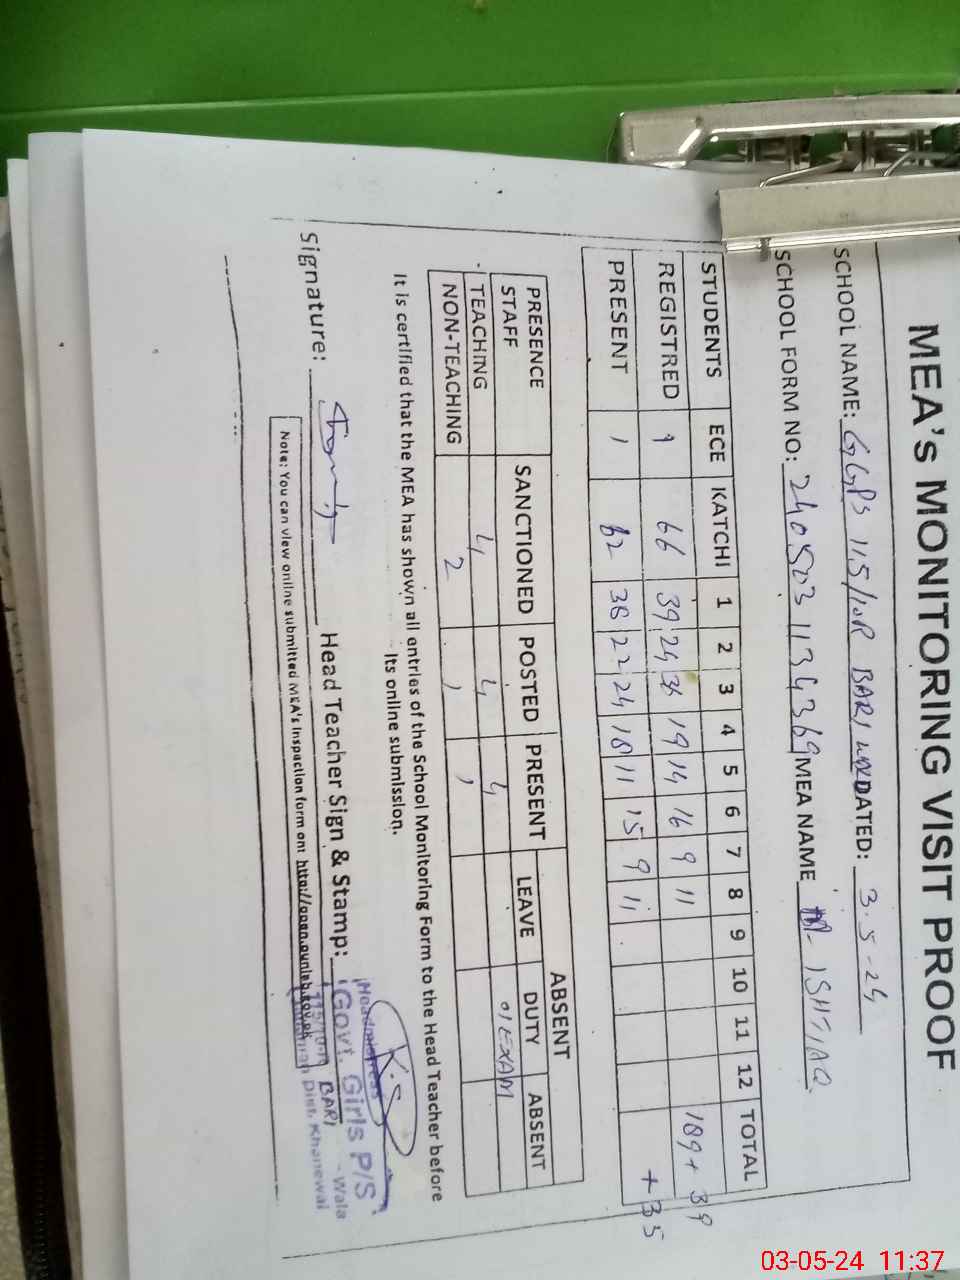 MEA's MONITORING VISIT PROOF
SCHOOL NAME: GGPS 115/10R BARI DATED: 3.5-24
SCHOOL FORM NO: MEA NAME ISHTIAQ
STUDENTS ECE KATCHI 1 2 3 4 5 6 7 8 9 10 11 12 TOTAL
REGISTRED 9 66 39 24 36 19 14 16 9 11 189+39
PRESENT 1 62 38 22 24 18 11 15 9 11 +35
PRESENCE STAFF SANCTIONED POSTED PRESENT ABSENT
LEAVE DUTY ABSENT
TEACHING 4 4 4 01 EXAM
NON-TEACHING 2 1 1
It is certified that the MEA has shown all entries of the School Monitoring Form to the Head Teacher before
its online submission.
Signature: Head Teacher Sign & Stamp:
Headmistress
Govt. Girls P/S
115/10-R BARI -Wala
Dist. Khanewal
Note: You can view online submitted MEA's inspection form on: http://open.punjab.gov.pk
03-05-24 11:37